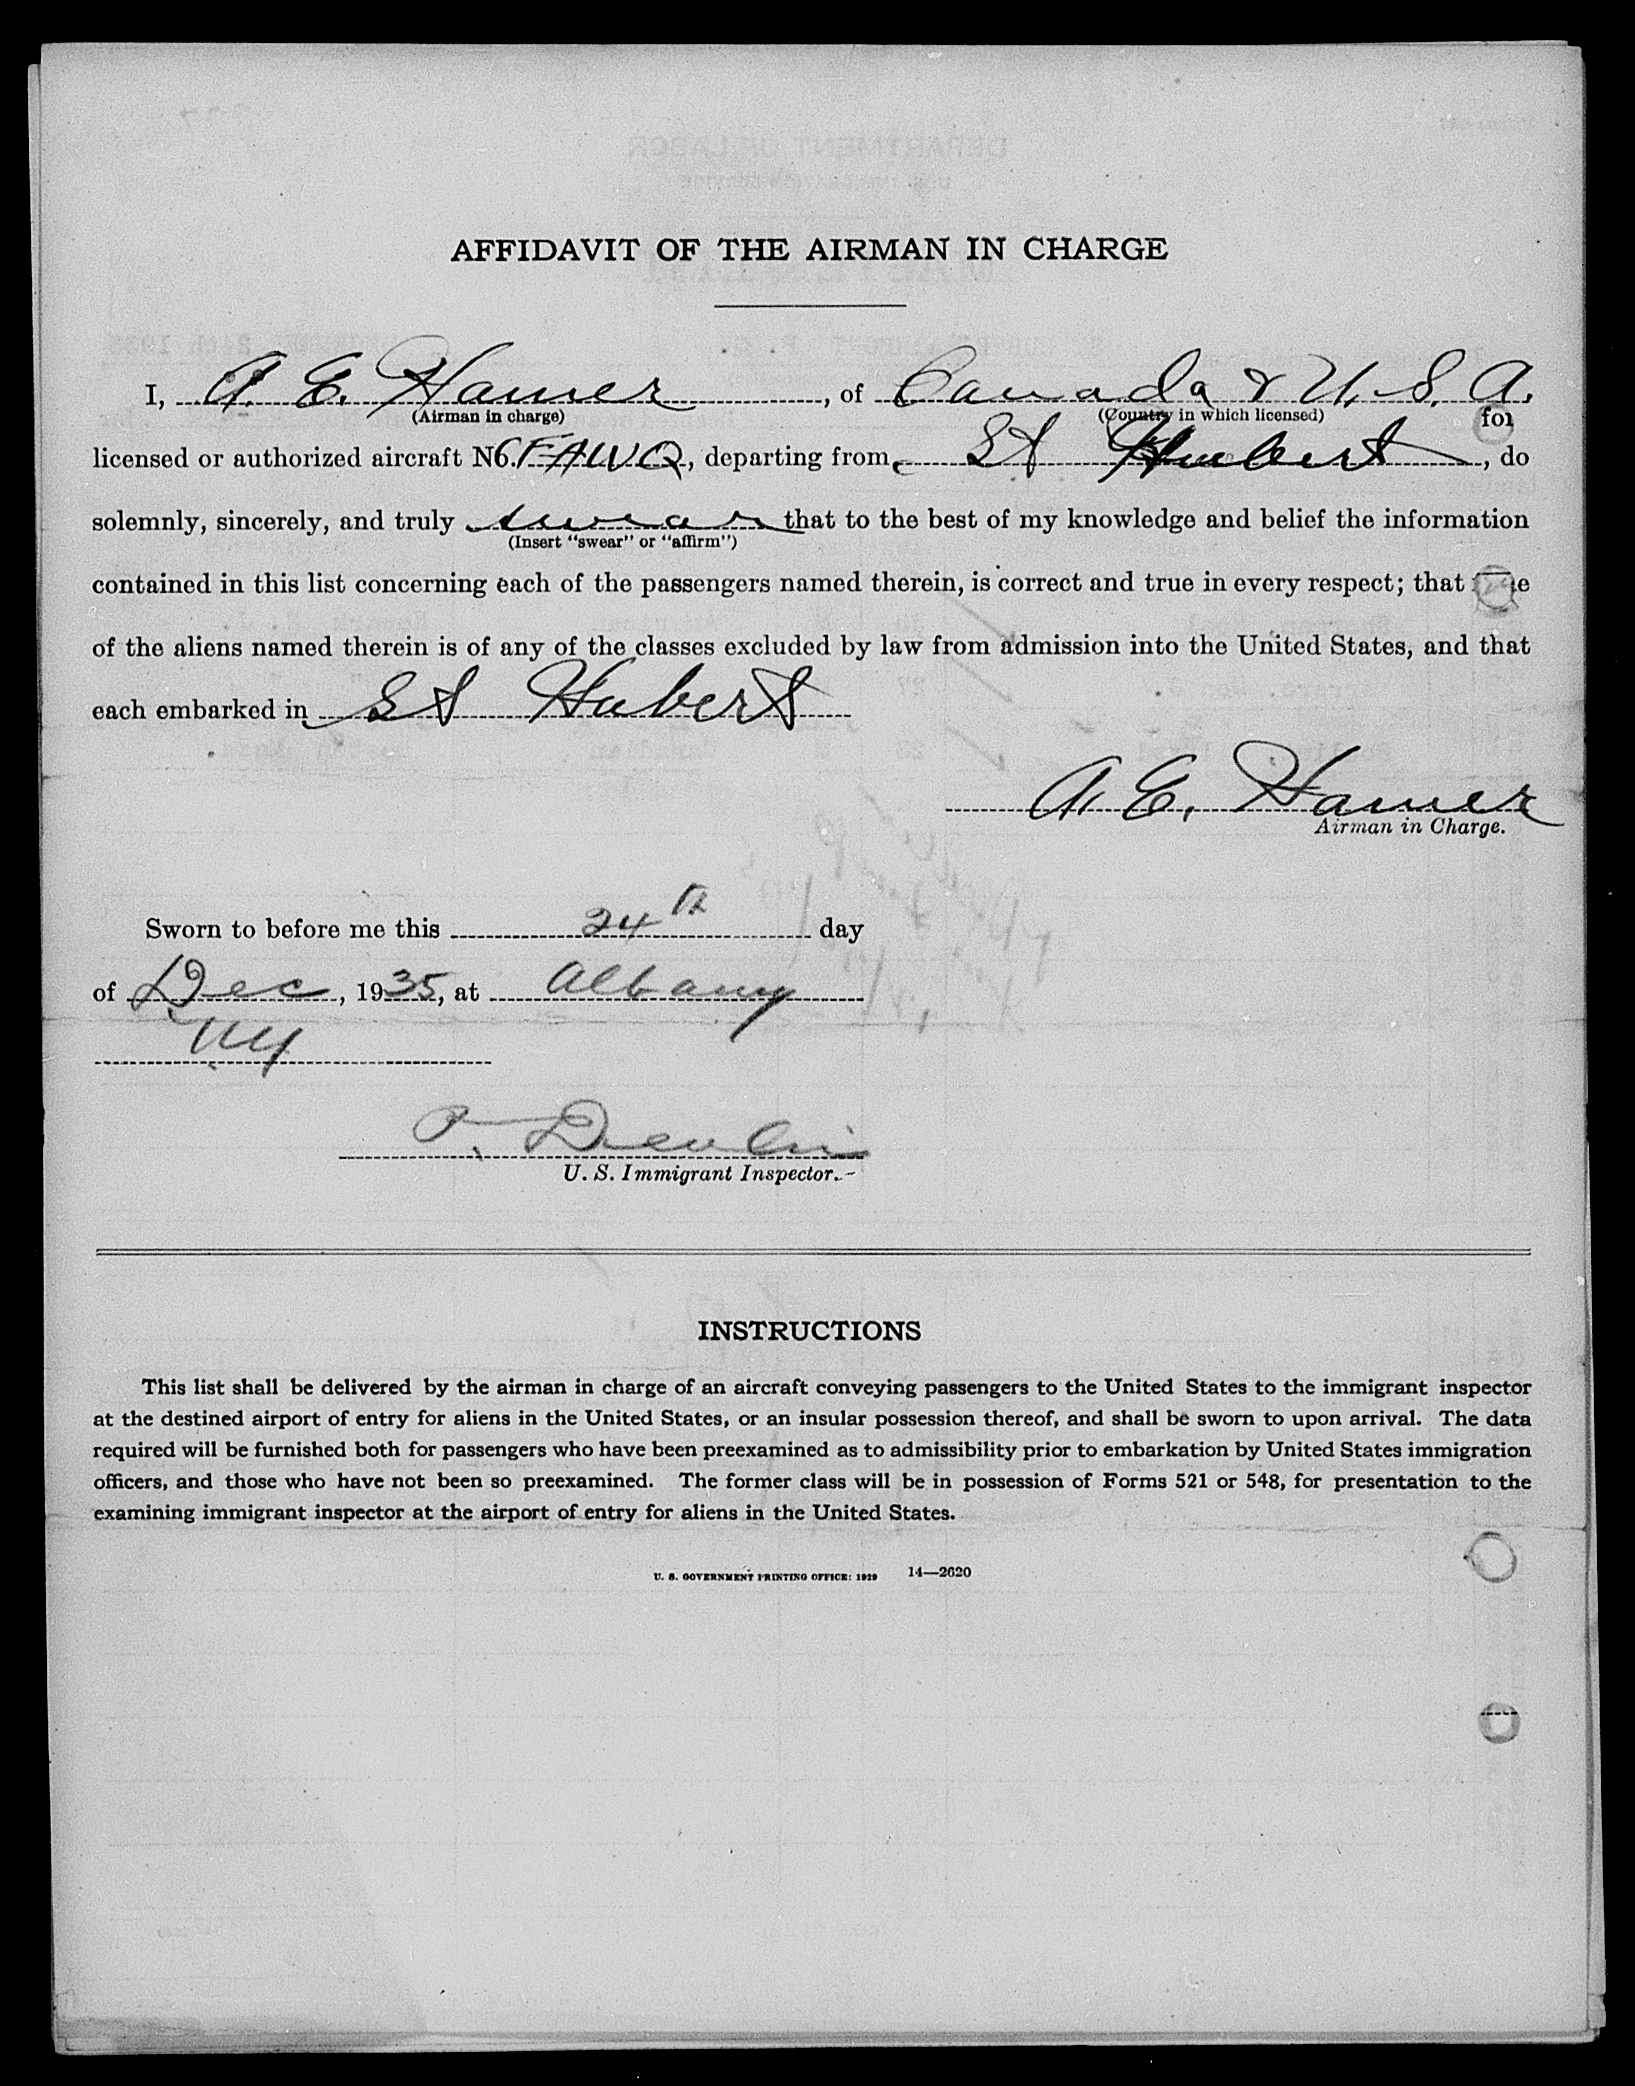 AFFIDAVIT OF THE AIRMAN IN CHARGE
I, A. E. Hamer, of Canada & U.S.A.
(Airman in charge) (Country in which licensed) for
licensed or authorized aircraft No. CFAWQ, departing from St Hubert, do
solemnly, sincerely, and truly swear that to the best of my knowledge and belief the information
(Insert "swear" or "affirm")
contained in this list concerning each of the passengers named therein, is correct and true in every respect; that
of the aliens named therein is of any of the classes excluded by law from admission into the United States, and that
each embarked in St Hubert
A. E. Hamer
Airman in Charge.
Sworn to before me this 24th day
of Dec, 1935, at Albany
NY
P. Devlin
U. S. Immigrant Inspector.
INSTRUCTIONS
This list shall be delivered by the airman in charge of an aircraft conveying passengers to the United States to the immigrant inspector
at the destined airport of entry for aliens in the United States, or an insular possession thereof, and shall be sworn to upon arrival. The data
required will be furnished both for passengers who have been preexamined as to admissibility prior to embarkation by United States immigration
officers, and those who have not been so preexamined. The former class will be in possession of Forms 521 or 548, for presentation to the
examining immigrant inspector at the airport of entry for aliens in the United States.
U. S. GOVERNMENT PRINTING OFFICE: 1929 14—2620